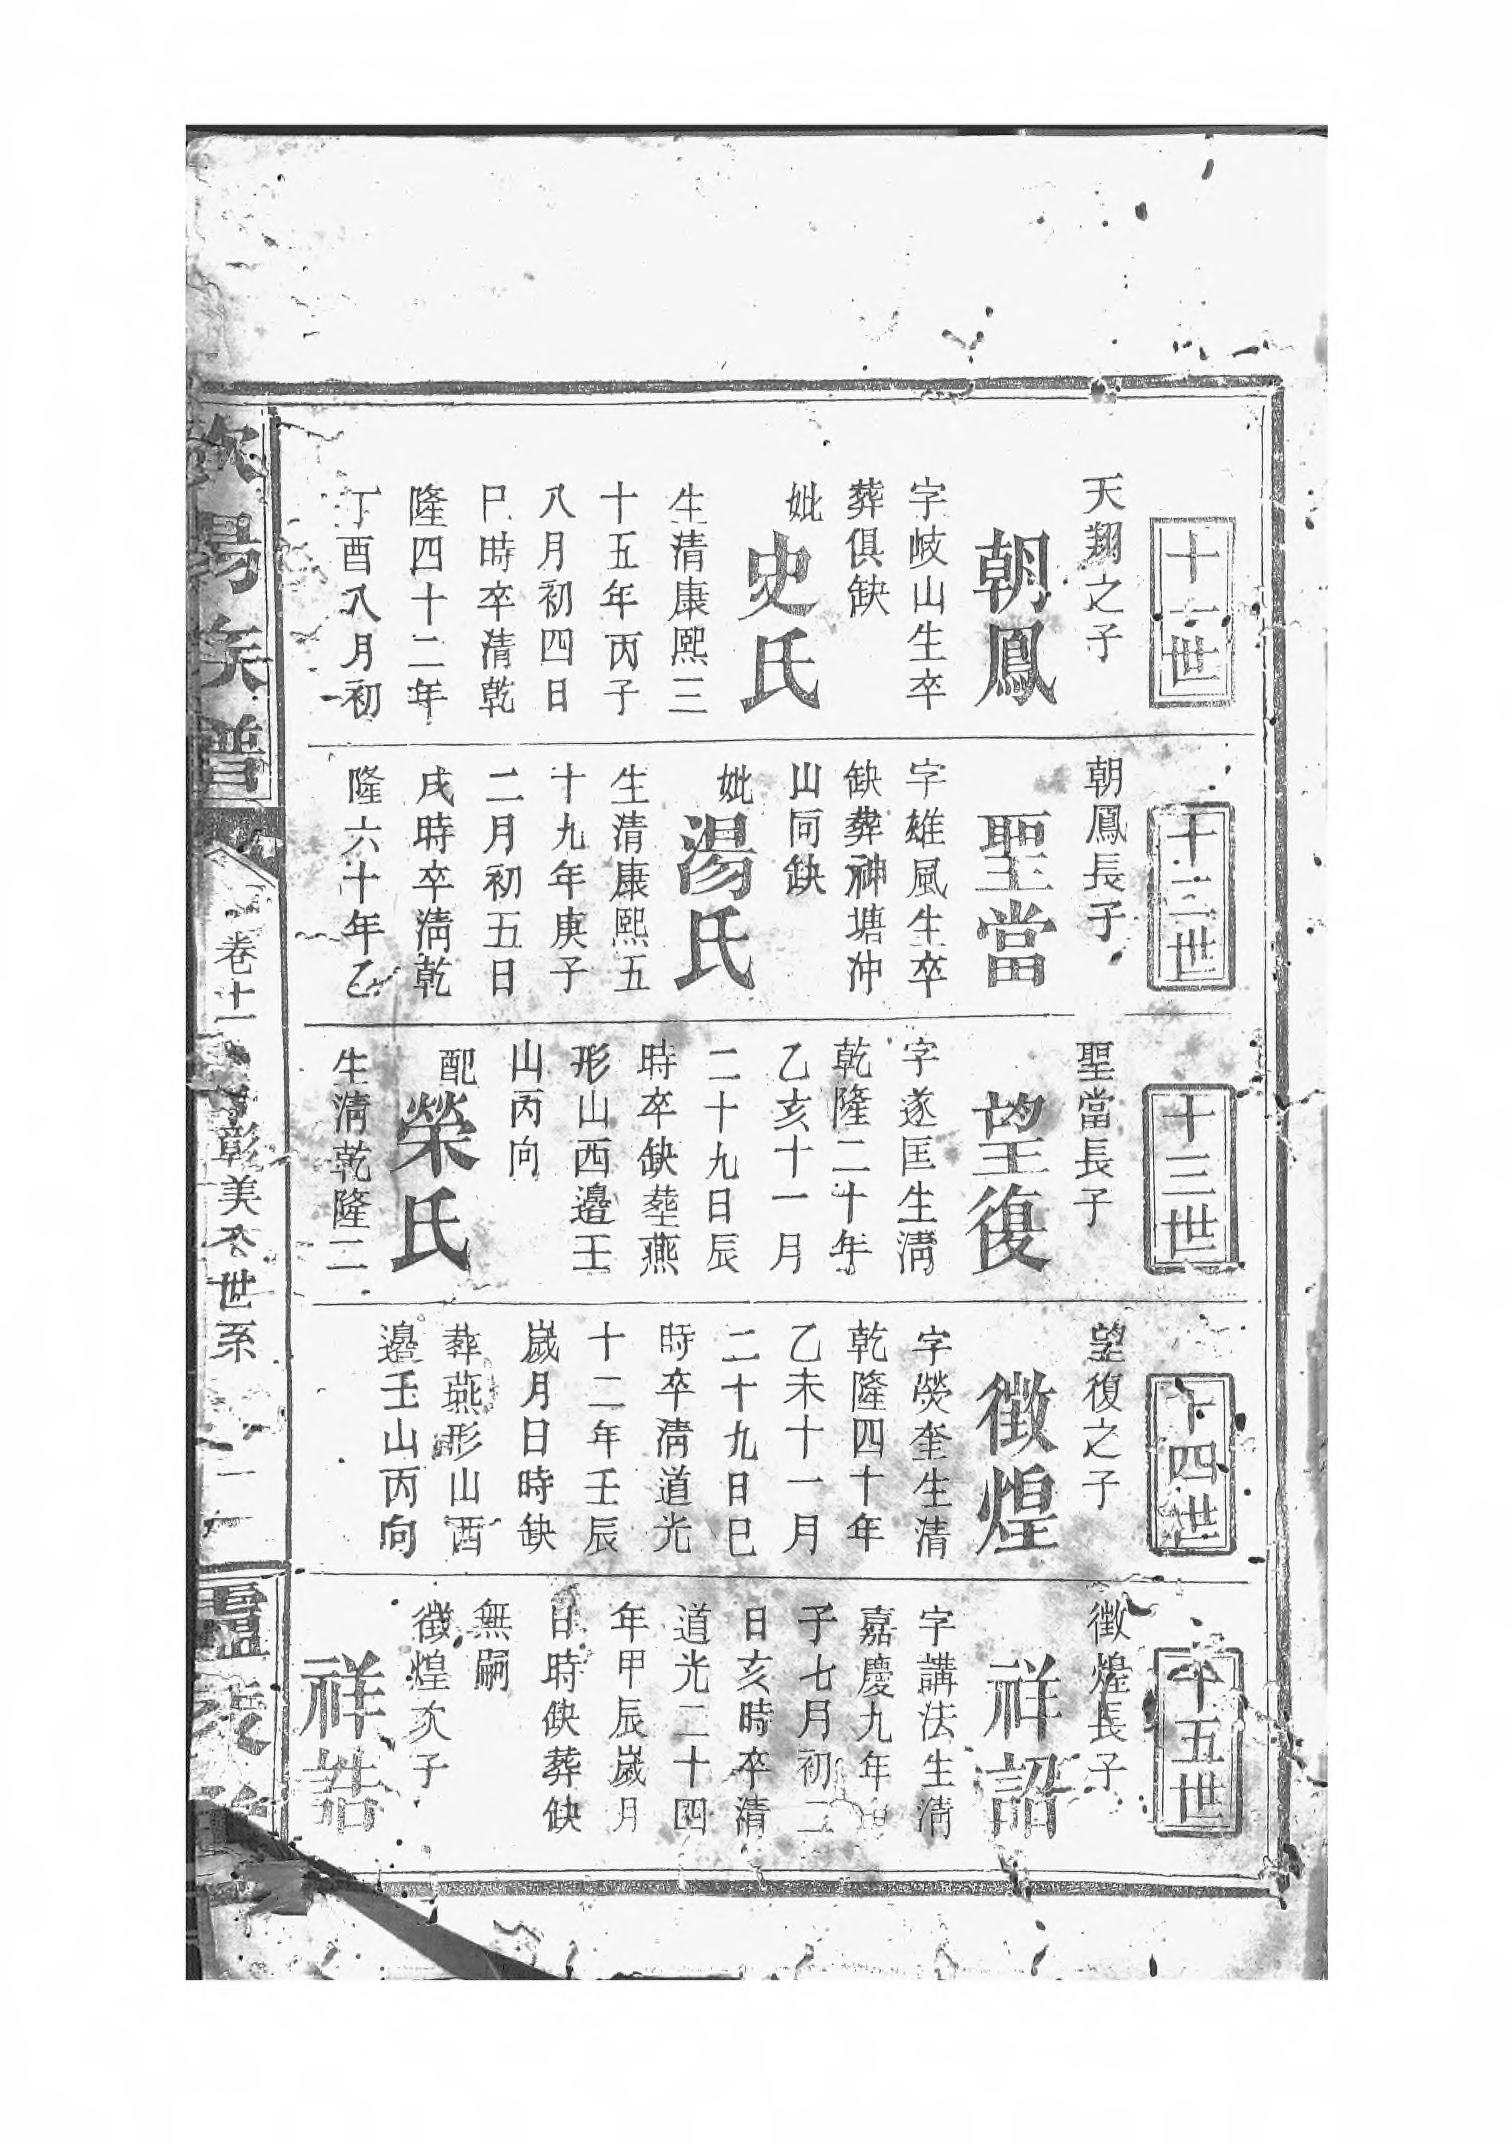 十一世
天翔之子
朝鳳
字岐山生卒
葬俱缺
妣
史氏
生清康熙三
十五年丙子
八月初四日
巳時卒清乾
隆四十二年
丁酉八月初
十二世
朝鳳長子
聖當
字雄風生卒
缺葬神塘冲
山向缺
妣
湯氏
生清康熙五
十九年庚子
二月初五日
戌時卒清乾
隆六十年乙
十三世
聖當長子
望復
字遂匡生清
乾隆二十年
乙亥十一月
二十九日辰
時卒缺塟燕
形山西邉壬
山丙向
配
榮氏
生清乾隆二
十四世
望復之子
徵煌
字熒奎生清
乾隆四十年
乙未十一月
二十九日巳
時卒清道光
十二年壬辰
歲月日時缺
葬燕形山西
邉壬山丙向
十五世
徵煌長子
祥詔
字講法生清
嘉慶九年甲
子七月初二
日亥時卒清
道光二十四
年甲辰歲月
日時缺葬缺
無嗣
徵煌次子
祥誥
易矣譜
卷十
彰美公世系